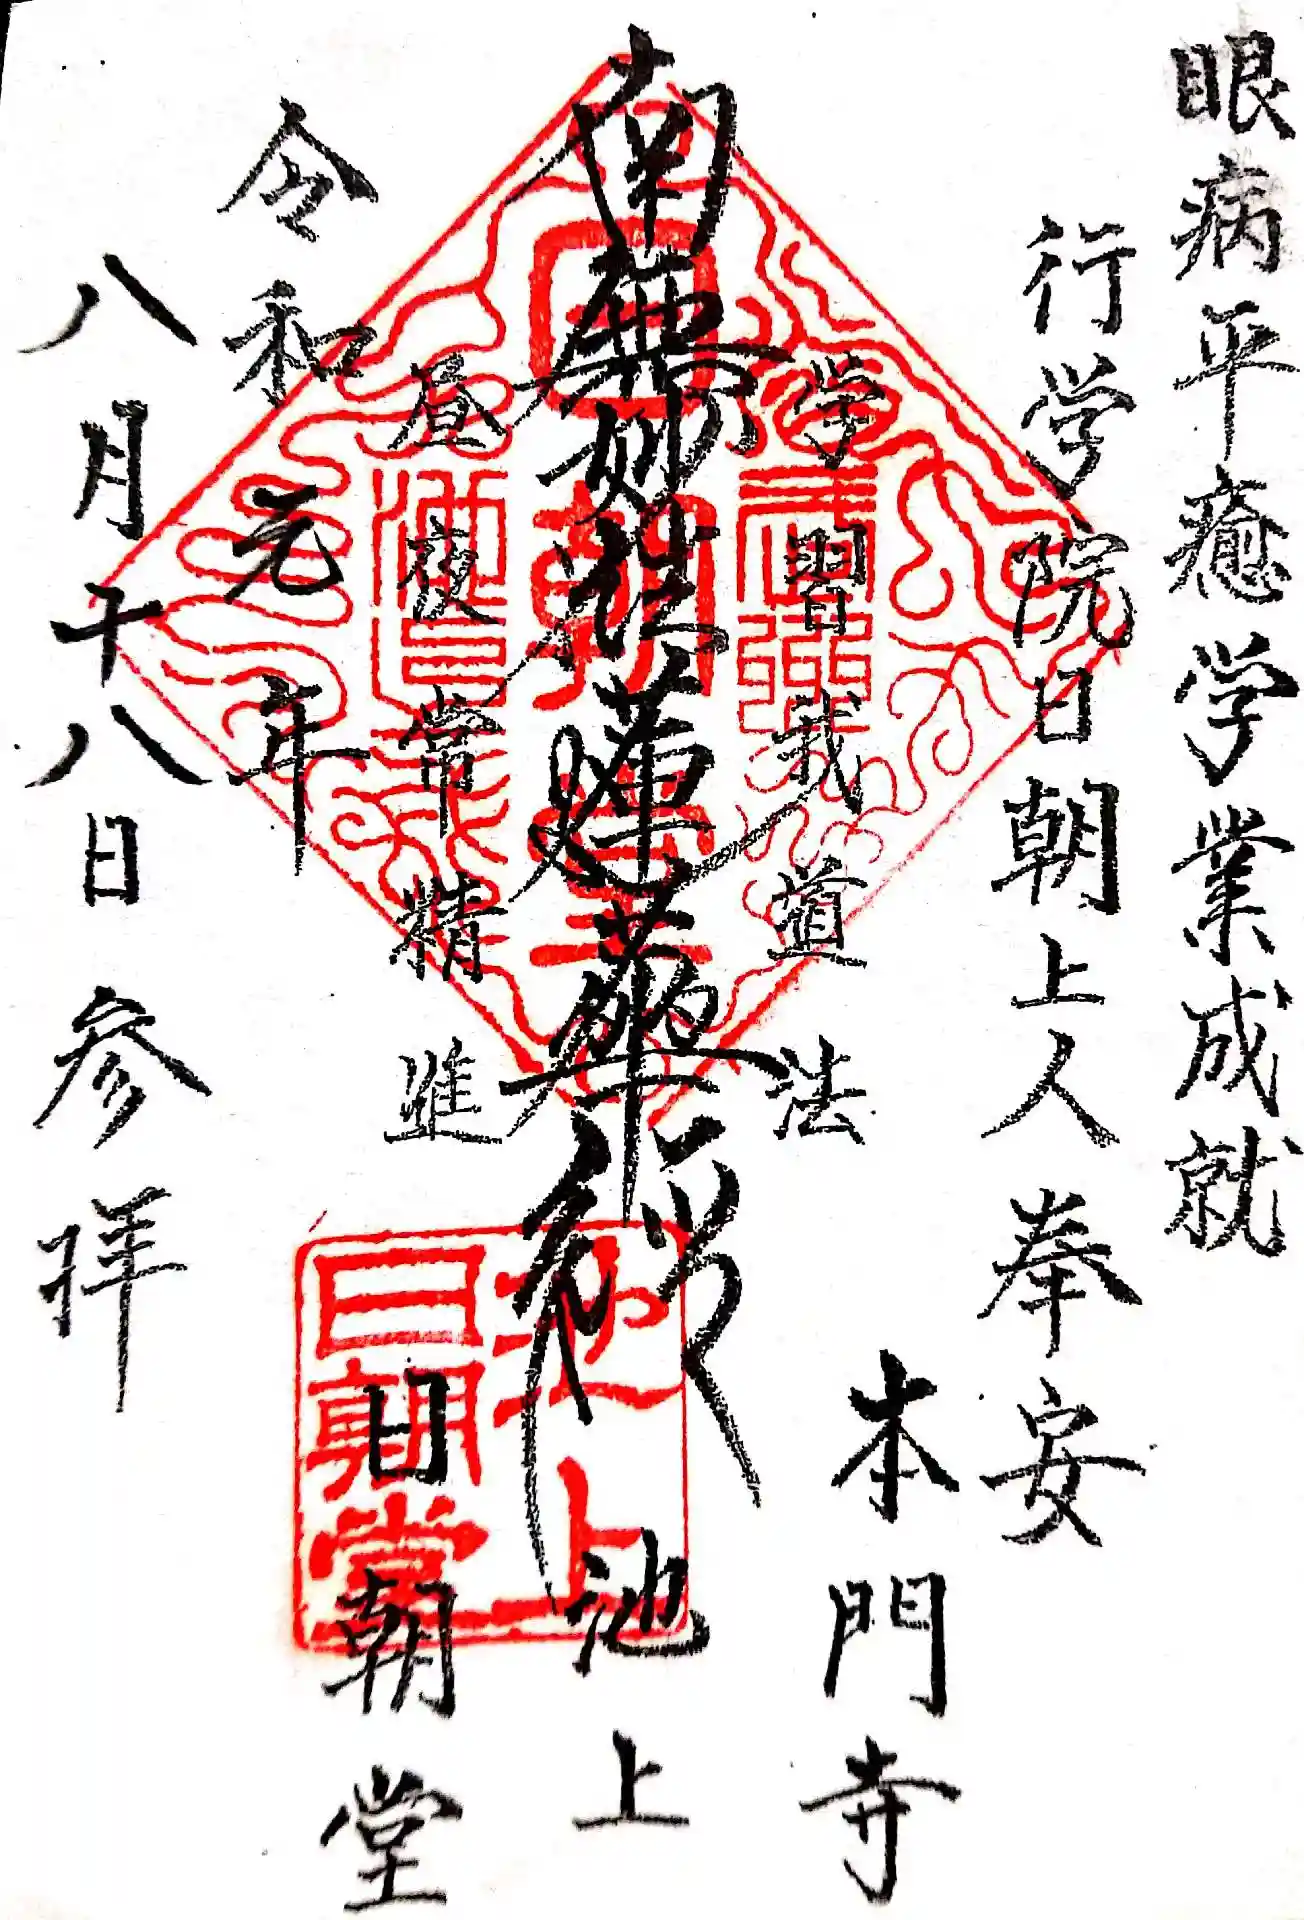 眼病平癒学業成就
行学院日朝上人奉安
本門寺
学習我道法
南無妙法蓮華経
池上
昼夜常精進
日朝堂
令和元年
八月十八日参拝
池上
日朝堂